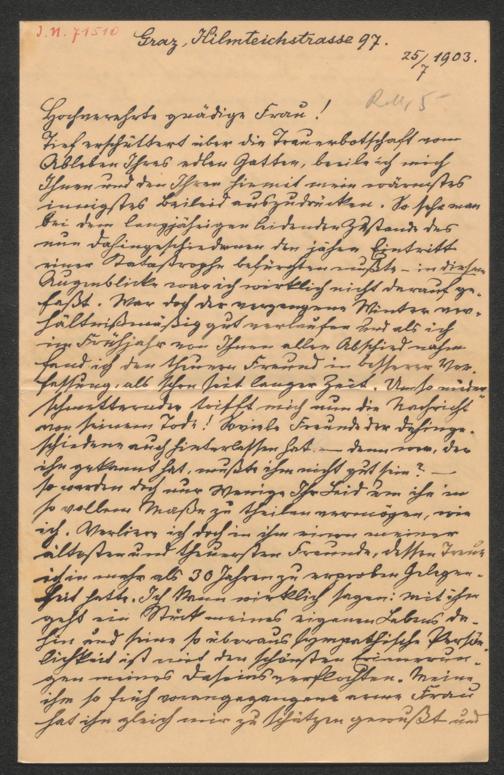 J.N. 71510
Graz, Hilmteichstrasse 97.
25/7 1903.
Hochverehrte gnädige Frau!
Tief erschüttert über die Trauerbotschaft vom
Ableben Ihres edlen Gatten, beeile ich mich
Ihnen und den Ihren hiemit mein wärmstes
innigstes Beileid auszudrücken. So sehr man
bei dem langjährigen leidenden Zustande des
nun Dahingeschiedenen den jähen Eintritt
einer Katastrophe befürchten mußte – in diesem
Augenblicke war ich wirklich nicht darauf ge-
faßt. War doch der vergangene Winter ver-
hältnißmäßig gut verlaufen und als ich
im Frühjahr von Ihnen allen Abschied nahm
fand ich den theuren Freund in besserer Ver-
fassung, als schon seit langer Zeit. Umso nieder-
schmetternder trifft mich nun die Nachricht
von seinem Tode! Soviele Freunde der Dahinge-
schiedene auch hinterlassen hat – denn wer, der
ihn gekannt hat, mußte ihm nicht gut sein? –
so werden doch nur Wenige Ihr Leid um ihn in
so vollem Maße zu theilen vermögen, wie
ich. Verliere ich doch in ihm einen meiner
ältesten und theuersten Freunde, dessen Treue
ich in mehr als 30 Jahren zu erproben Gelegen-
heit hatte. Ich kann wirklich sagen: mit ihm
geht ein Stück meines eigenen Lebens da-
hin und seine so überaus sympathische Persön-
lichkeit ist mit den schönsten Erinnerun-
gen meines Daseins verflochten. Meine
ihm so früh vorangegangene arme Frau
hat ihn gleich mir zu schätzen gewußt und